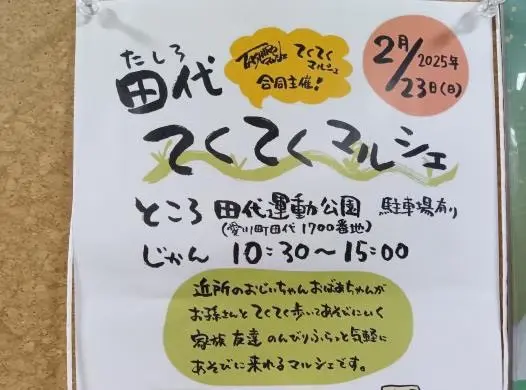 たしろ
田代
てくてく
マルシェ
合同主催!
2月/23日(日)
2025年
てくてくマルシェ
ところ 田代運動公園 駐車場有り
(愛川町田代1700番地)
じかん 10:30〜15:00
近所のおじいちゃんおばあちゃんが
お孫さんとてくてく歩いてあそびにいく
家族 友達 のんびりふらっと気軽に
あそびに来れるマルシェです。